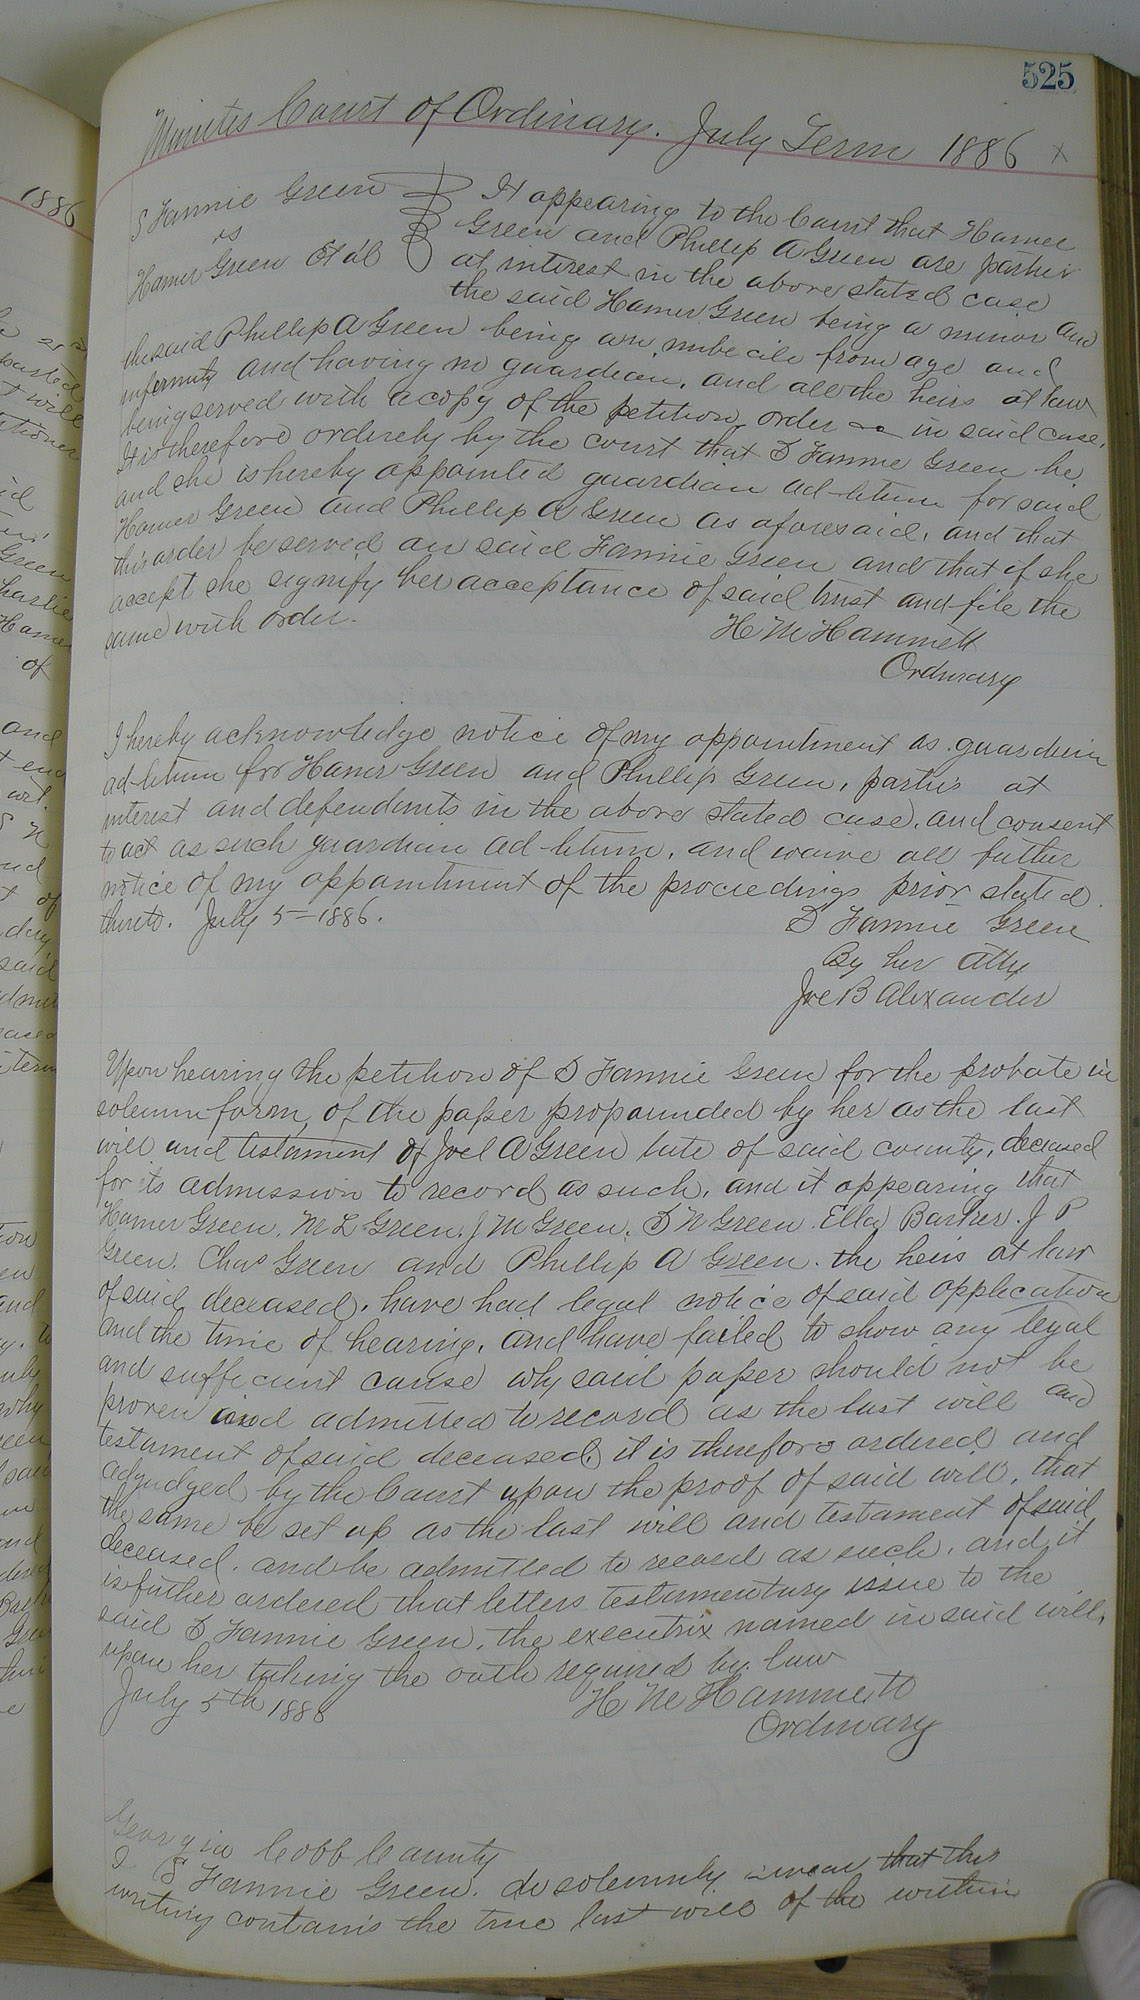 525
Minutes Court of Ordinary. July Term 1886 x
S Fannie Green
vs
Hamer Green Et al
It appearing to the Court that Hamer
Green and Phillip A Green are parties
at interest in the above stated case
the said Hamer Green being a minor and
the said Phillip A Green being an imbecile from age and
infermity and having no guardian, and all the heirs at law
being served with a copy of the petition order in said case.
It is therefore ordered by the court that S Fannie Green be
and she is hereby appointed guardian ad-litum for said
Hamer Green and Phillip A Green as aforesaid, and that
this order be served on said Fannie Green and that if she
accept she signify her acceptance of said trust and file the
same with order.
H M Hammett
Ordinary
I hereby acknowledge notice of my appointment as guardian
ad-litum for Hamer Green and Phillip Green, parties at
interest and defendants in the above stated case, and consent
to act as such guardian ad-litum, and waive all futher
notice of my appointment of the proceedings prior stated
thereto. July 5=1886.
S Fannie Green
By her Atty
Joe B Alexander
Upon hearing the petition of S Fannie Green for the probate in
solemn form, of the paper propounded by her as the last
will and testament of Joel A Green late of said county, deceased
for its admission to record as such, and it appearing that
Hamer Green, M L Green, J M Green, S N Green, Ella Barker, J P
Green, Chas Green and Phillip A Green, the heirs at law
of said deceased, have had legal notice of said application
and the time of hearing, and have failed to show any legal
and sufficient cause why said paper should not be
proven and admitted to record as the last will and
testament of said deceased, it is therefore ordered and
adjudged by the Court upon the proof of said will, that
the same be set up as the last will and testament of said
deceased, and be admitted to record as such, and it
is futher ordered that letters testamentary issue to the
said S Fannie Green, the executrix named in said will,
upon her taking the oath required by law
July 5th 1886
H M Hammett
Ordinary
Georgia Cobb County
I S Fannie Green, do solemnly swear that this
writing contains the true last will of the within
1886
Green
Charlie
Hamer
of
and
said